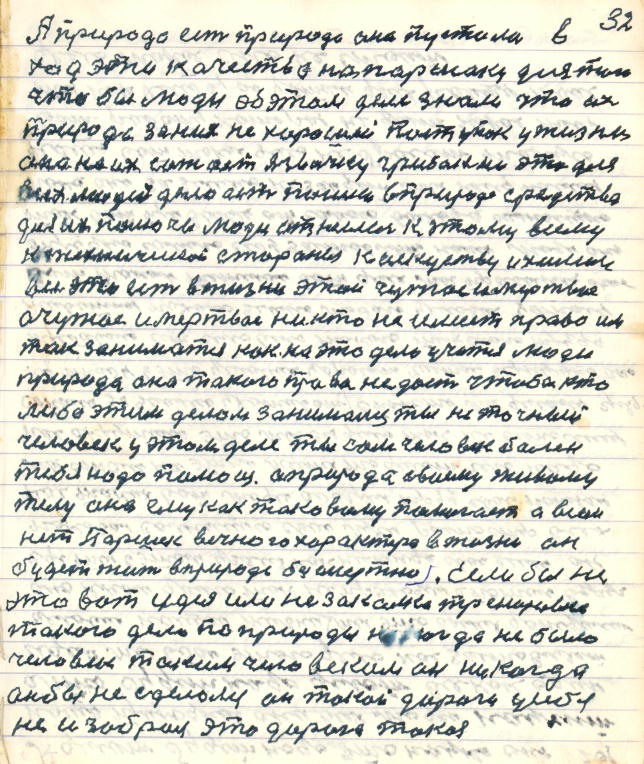 32
А природа ест природа она пустила в
ход эти качества на паршаку для того
что бы люди об этом деле знали что их
природа за них не хороший поступок у жизни
она на их сажает язвачку грибок но это для
всех людей дело есть поиски в природе средства
для их помочь люди отнесли к этому всему
к технической стороне к искуству и химии
вы это ест в жизни этой чужое и мертвое
а чужое и мертвое никто не имеет право им
так заниматся как на это дело учится люди
природа она такого права не дает чтоба кто
либа этим делом занимался ты не точный
человек у этом деле ты сам человек болен
тебя надо помощ. а природа своему живому
телу она ему как таковому помогает а веом
нет Паршек вечного характера в жизни он
будет жит в природе безсмертно. Если бы не
это вот идея или не закалка тренировка
такого дела по природи никогда не было
человек таким человеком он никогда
он бы не сделался он такой дорога у себя
не изобрал это дорога такая